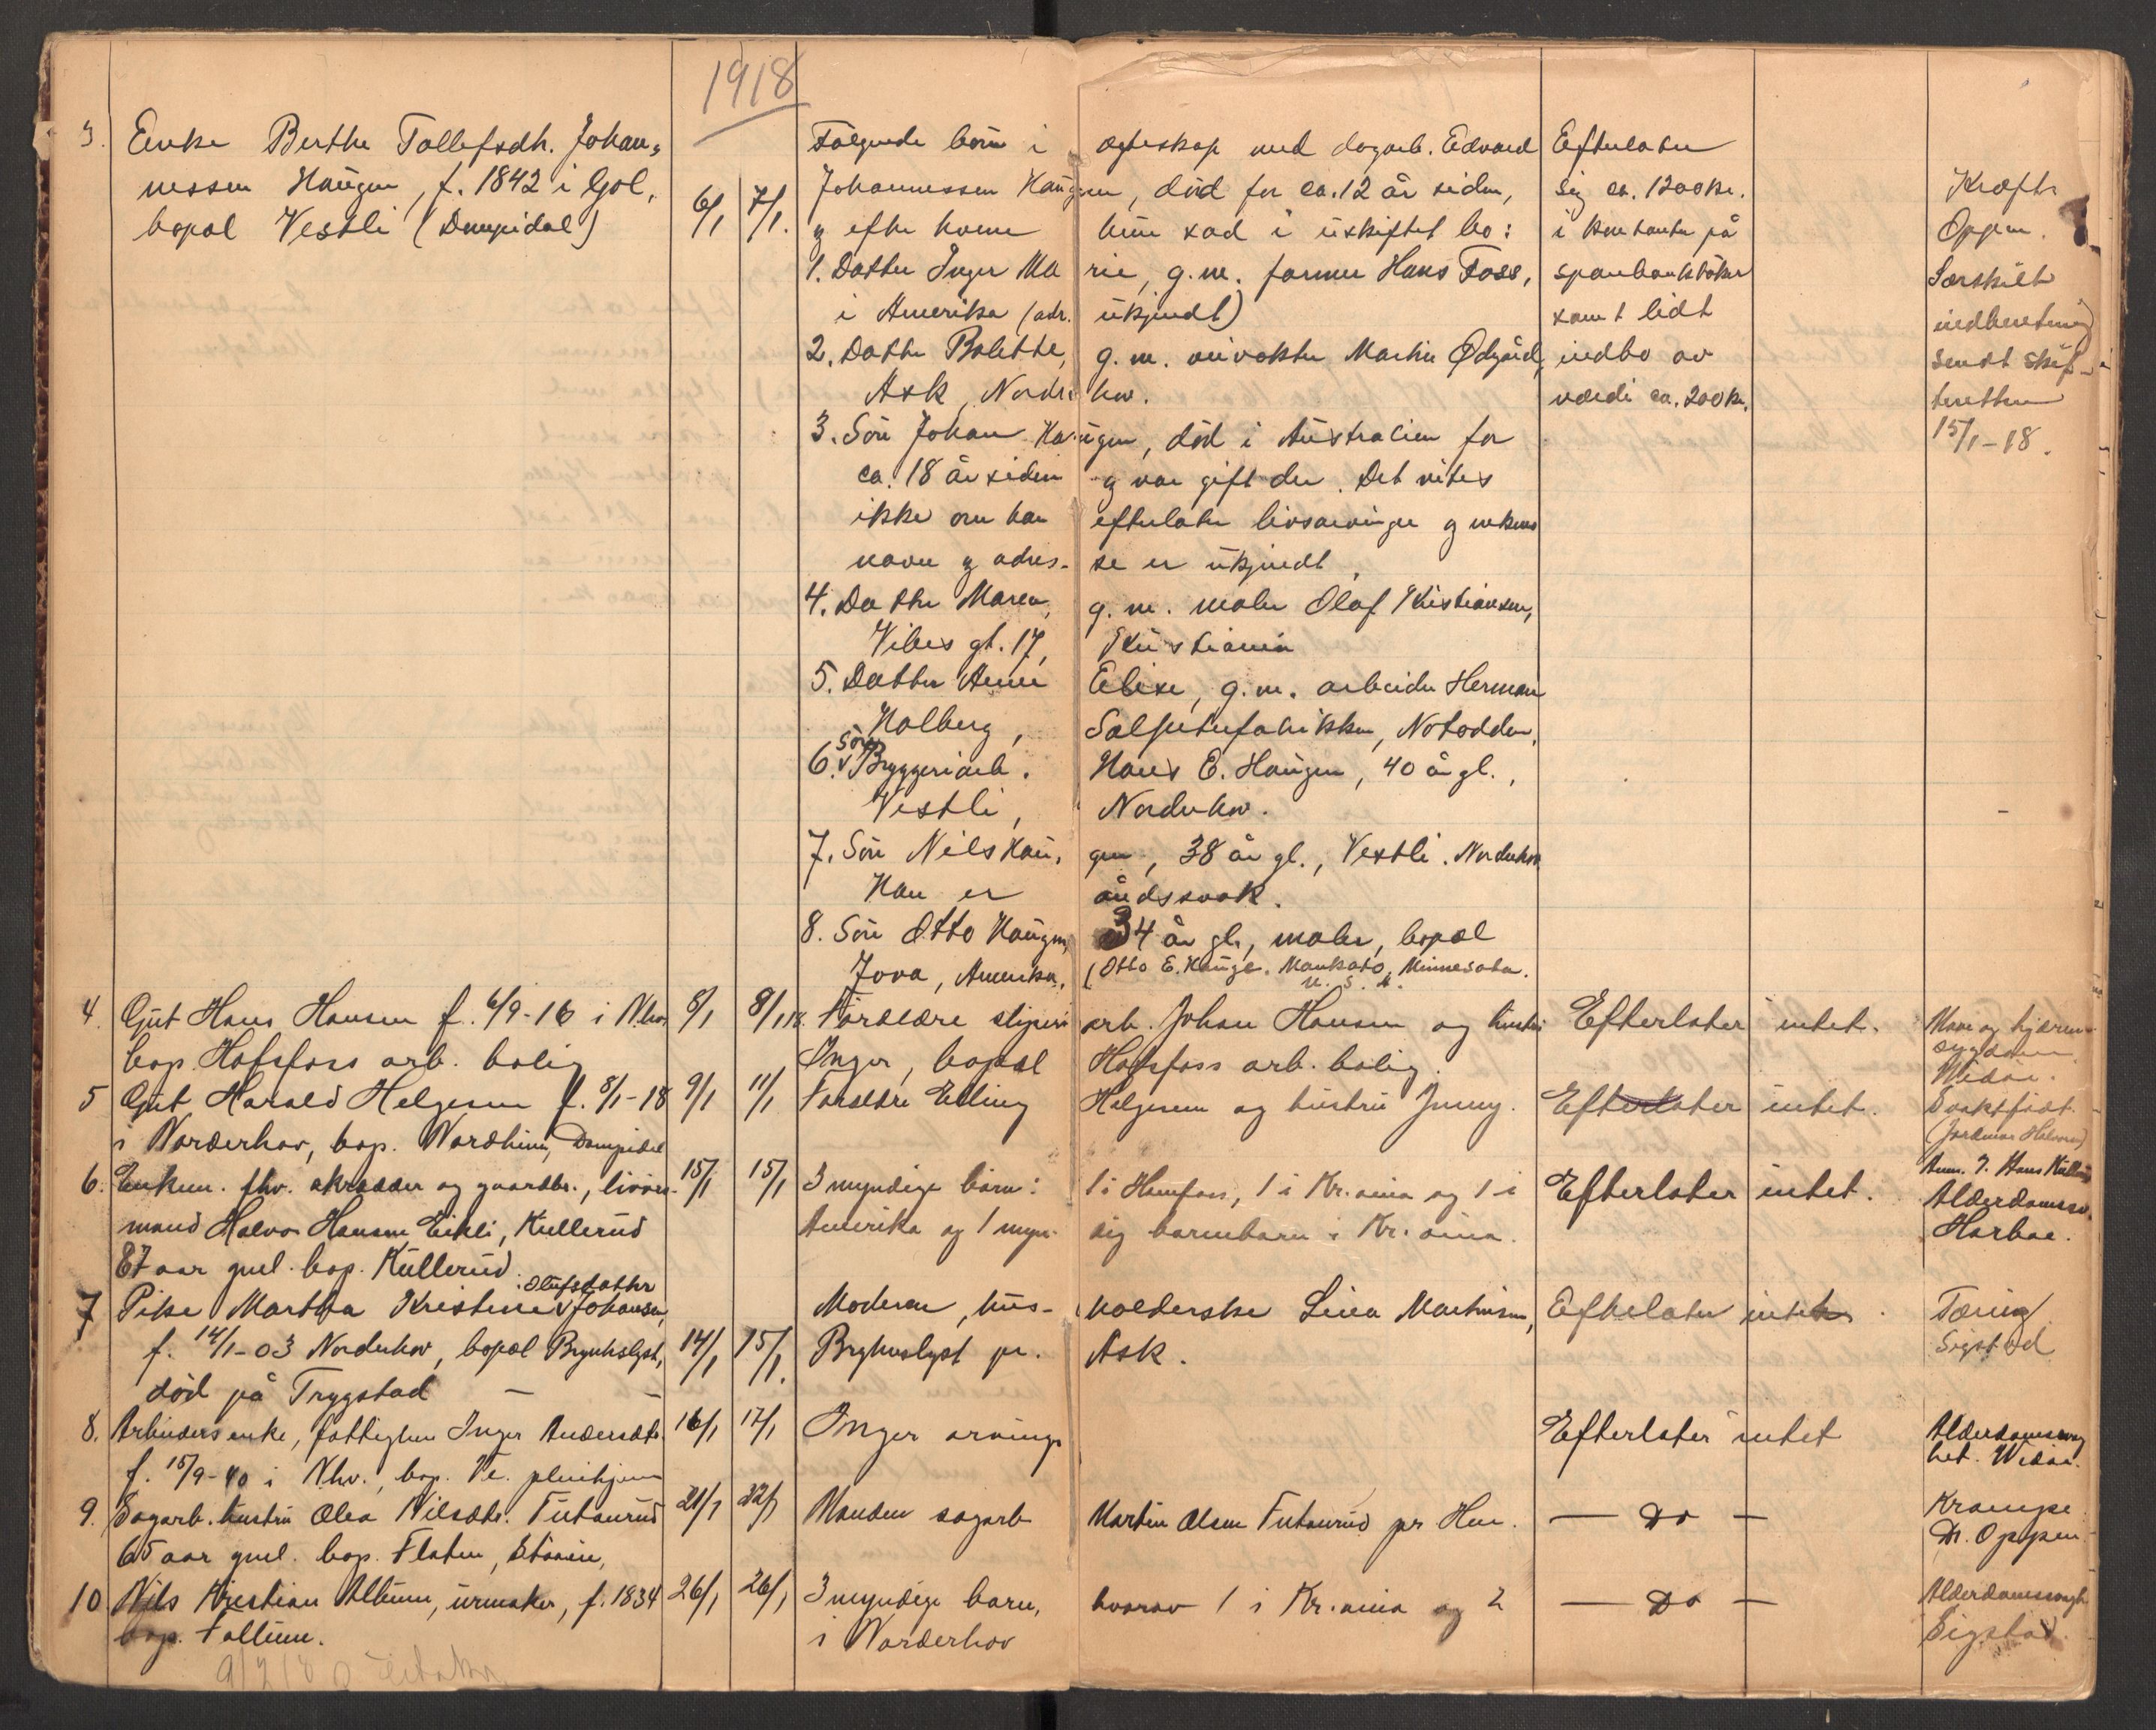 1918
3. Enke Berthe Tollefsdtr. Johan-
nessen Haugen, f. 1842 i Gol,
bopæl Vestli (Dampidal)
6/1 7/1.
Følgende børn i ægteskap med dagarb. Edvard
Johannessen Haugen, død for ca. 12 år siden,
og efter hvem hun sad i uskiftet bo:
1. Datter Inger Marie, g.m. farmer Hans Foss,
i Amerika (adr. ukjendt)
2. Datter Bolette, g.m. Martin Ødegård,
Ask, Norderhov.
3. Søn Johan Haugen, død i Australien for
ca. 18 år siden og var gift der. Det vites
ikke om han efterlater livsarvinger og enkens
navn og adres- se er ukjendt.
4. Datter Maren, g.m. maler Olaf Kristiansen,
Vibes gt. 17, Kristiania
5. Datter Anne Elise, g.m. arbeider Herman
Holberg, Salpeterfabrikken, Notodden.
6. Søn Bryggeriarb. Hans E. Haugen, 40 år gl.,
Vestli, Norderhov.
7. Søn Nils Haugen, 38 år gl., Vestli. Norderhov
Han er åndssvak.
8. Søn Otto Haugen, 34 år gl., maler, bopæl
Jova, Amerika. (Otto E. Hauge. Mankato, Minnesota.
U. S. A.
Efterlater
sig ca. 1200 kr.
i kontanter på
sparebankbøker
samt lidt
indbo av
værdi ca. 200 kr.
Kræft
Oppen.
Særskilt
indberetning
sendt skif-
teretten
15/1-18.
4. Gut Hans Hansen f. 6/9-16 i Nhov 8/1 8/1 18. Forældre sliperi arb. Johan Hansen og hustru Efterlater intet. Mave og hjerne-
bop. Hofsfoss arb. bolig Inger, bopæl Hofsfoss arb. bolig. sygdom
Widør.
5 Gut Harald Helgesen f. 8/1-18 9/1 11/1 Forældre Elling Helgesen og hustru Jenny. Efterlater intet. Svaktfødt.
i Norderhov, bop. Nordhim, Dampidal (Jordmor Halvorsen)
6. Enkem. fhv. skrædder og gaardbr., livøres- 15/1 15/1 3 myndige børn: 1 i Hønefoss, 1 i Kr.ania og 1 i Efterlater intet. Anm. J. Hans Kullerud
mand Halvor Hansen Eikli, Kullerud Amerika og 1 myn- dig barnebarn i Kr.ania. Alderdomssv.
87 aar gml. bop. Kullerud. Harboe.
7 Pike Martha Kristine Olufsdatter Johansen, Moderen, hus- holderske Lina Martinsen, Efterlater intet. Tæring
f. 14/1-03 Norderhov, bopæl Brynhslyst, 14/1 15/1. Brghuslyst pr. Ask. Sigstad
død på Trygstad
8. Arbeidersenke, fattiglem Inger Andersdtr. 16/1 17/1 Ingen arvinger Efterlater intet Alderdomssvag
f. 15/9-40 i Nhv., bop. Ve. pleiehjem het. Widør.
9. Sagarb. hustru Olea Nilsdtr. Tutanrud 21/1 22/1 Manden sagarb Martin Olsen Tutanrud pr Hen. — Do — Krampe
65 aar gml. bop. Flaten, Støveien, Dr. Oppen
10 Nils Kristian Allum, urmaker, f. 1834 26/1 26/1 3 myndige barn, hvorav 1 i Kr.ania og 2 — Do — Alderdomssvagh
bop. Follum. i Norderhov Sigstad.